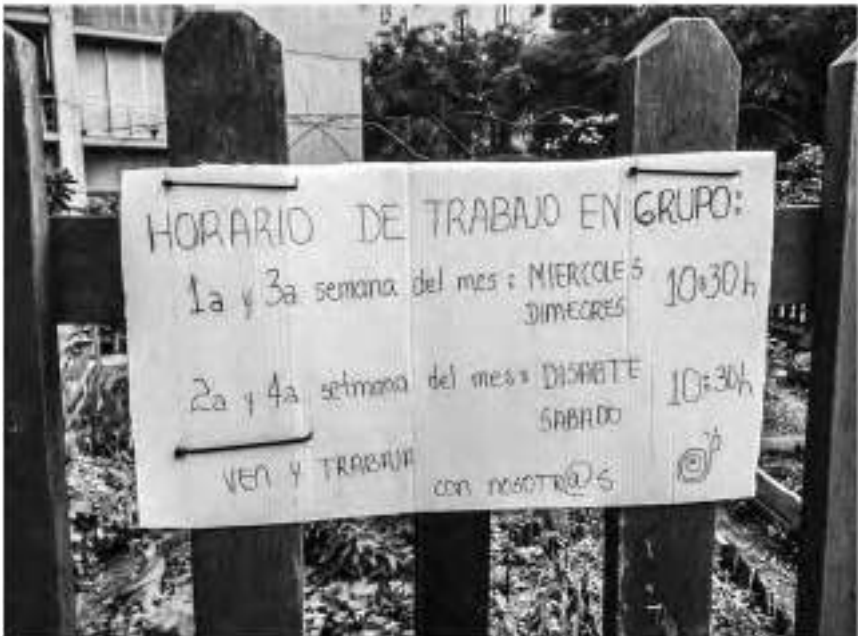 HORARIO DE TRABAJO EN GRUPO:
1a y 3a semana del mes: MIERCOLES 10:30h
DIMECRES
2a y 4a setmana del mes: DISABTE 10:30h
SABADO
VEN Y TRABAJA
con nosotr@s